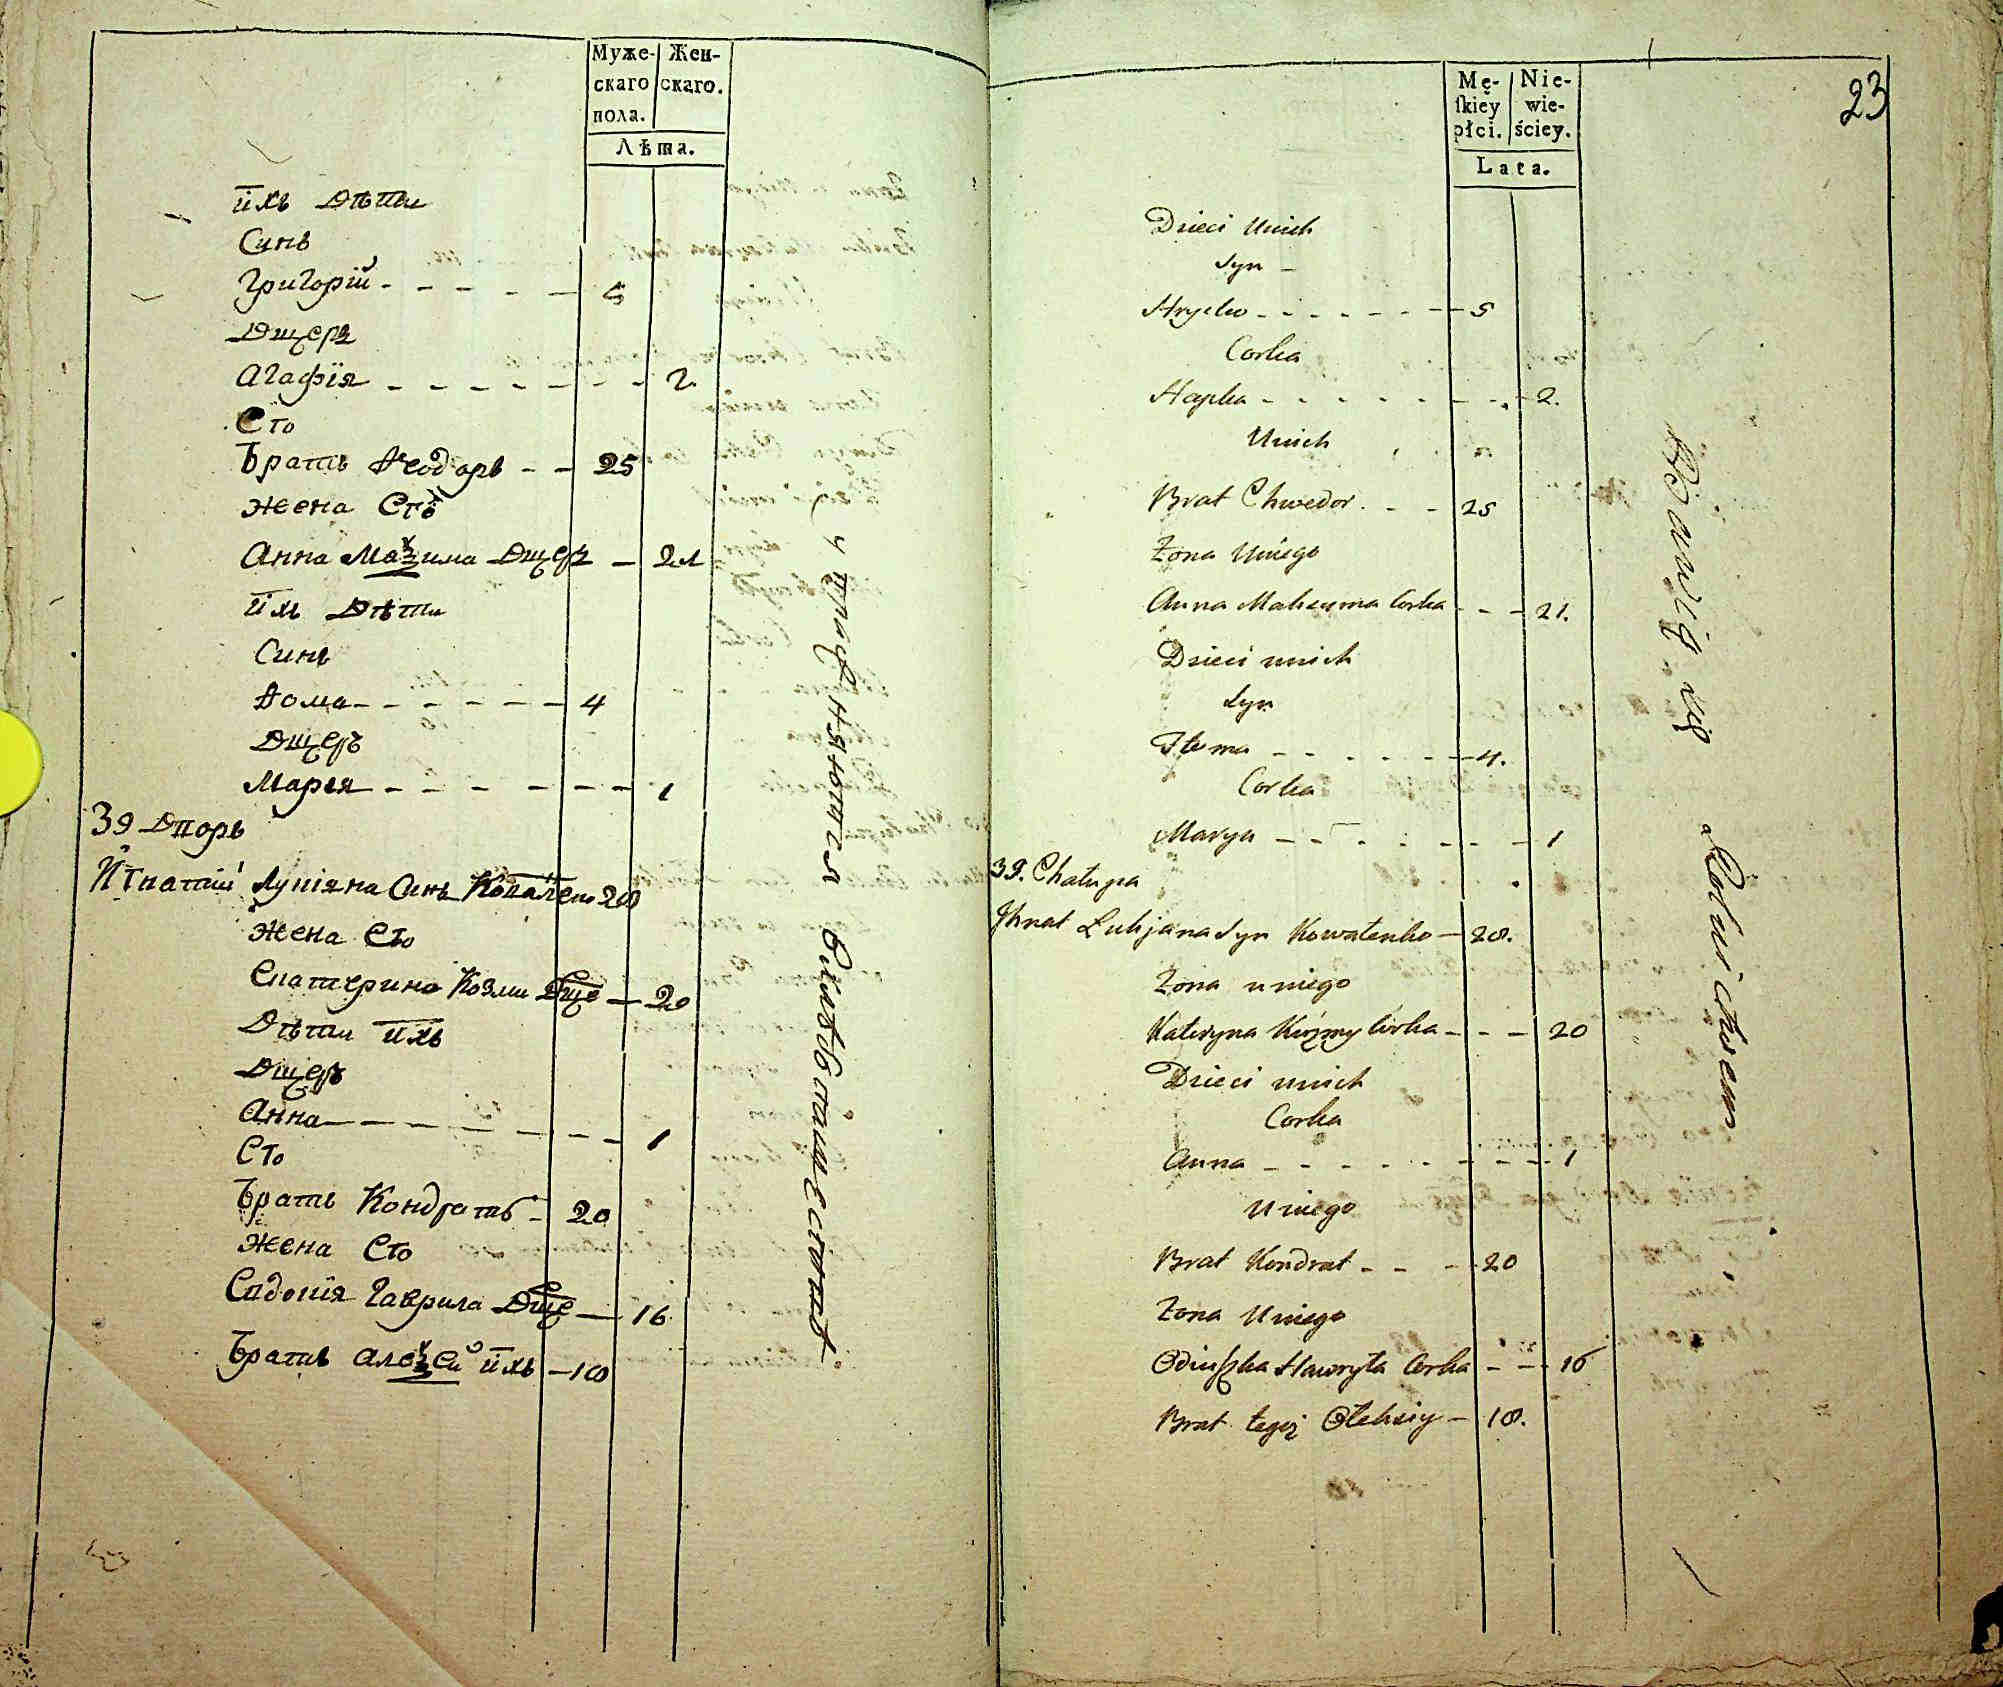 Муже-
скаго
пола.
Жен-
скаго.
Лѣта.
ихъ Дѣти
Синъ
Григорій 5
Дщерь
Агафїя 2
Его
Братъ Ѳеодоръ 25
Жена Его
Анна Маѯима Дщерь 21
ихъ Дѣти
Синъ
Ѳома 4
Дщерь
Марія 1
39 Дворъ
Игнатій Лукіяна Синъ Коваленко 28
Жена Его
Екатерина Козми Дще 20
Дѣти ихъ
Дщерь
Анна 1
Его
Братъ Кондратъ 20
Жена Его
Евдокїя Гаврила Дще 16
Братъ Алеѯѣй ихъ 18
упражняются
хлѣбопашествомъ
23
Mę-
ſkiey
płci.
Nie-
wie-
ściey.
Lata.
Dzieci Unich
Syn
Hryćko 5
Corka
Hapka 2.
Unich
Brat Chwedor 25
Żona Uniego
Anna Maksyma Corka 21.
Dzieci unich
Syn
Homa 4.
Corka
Marya 1
39. Chałupa
Ihnat Lukjana Syn Kowałenko 28.
Żona uniego
Kateryna Kuźmy Córka 20
Dzieci unich
Corka
Anna 1
Uniego
Brat Kondrat 20
Żona Uniego
Hawryła Corka 16
Brat tegoż Ołeksiy 18.
Bawią się
Rolnictwem